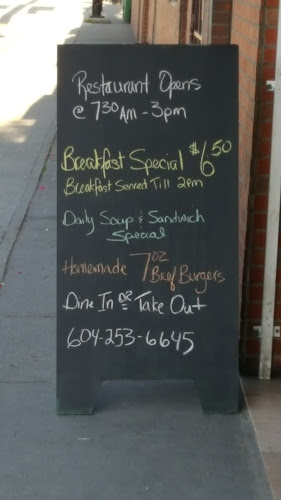 Restaurant Opens
@ 7:30 AM - 3pm
Breakfast Special $6.50
Breakfast Served Till 2pm
Daily Soup & Sandwich
Special
Homemade 7oz Beef Burgers
Dine In or Take Out
604-253-6645